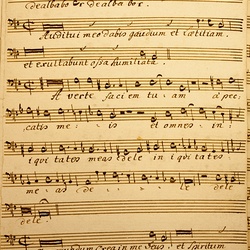 dealbabo r dealba bor.
Auditui meo dabis gaudium et lætitiam.
et exultabunt ossa humiliata.
A verte faciem tu am a pec:
catis me is et omnes in
i qui tates meas dele in i qui tates
me as de le dele
dele.
Crea in me Deus: et Spiritum